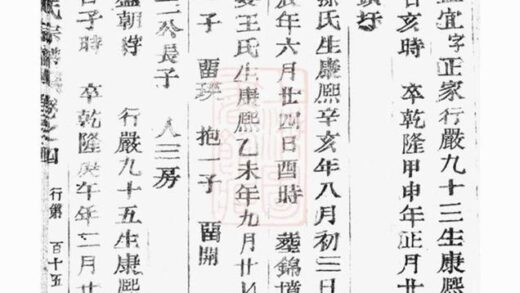 宜字正家行嚴九十三生康熙
亥時 卒乾隆甲申年正月廿
孫氏生康熙辛亥年八月初三日
辰年六月廿四日酉時 葬錦墳
王氏生康熙乙未年九月廿
一子 留 抱一子 留開
二公長子 人三房
朝 行嚴九十五生康
子時 卒乾隆庚午年二月廿
行第 百十五